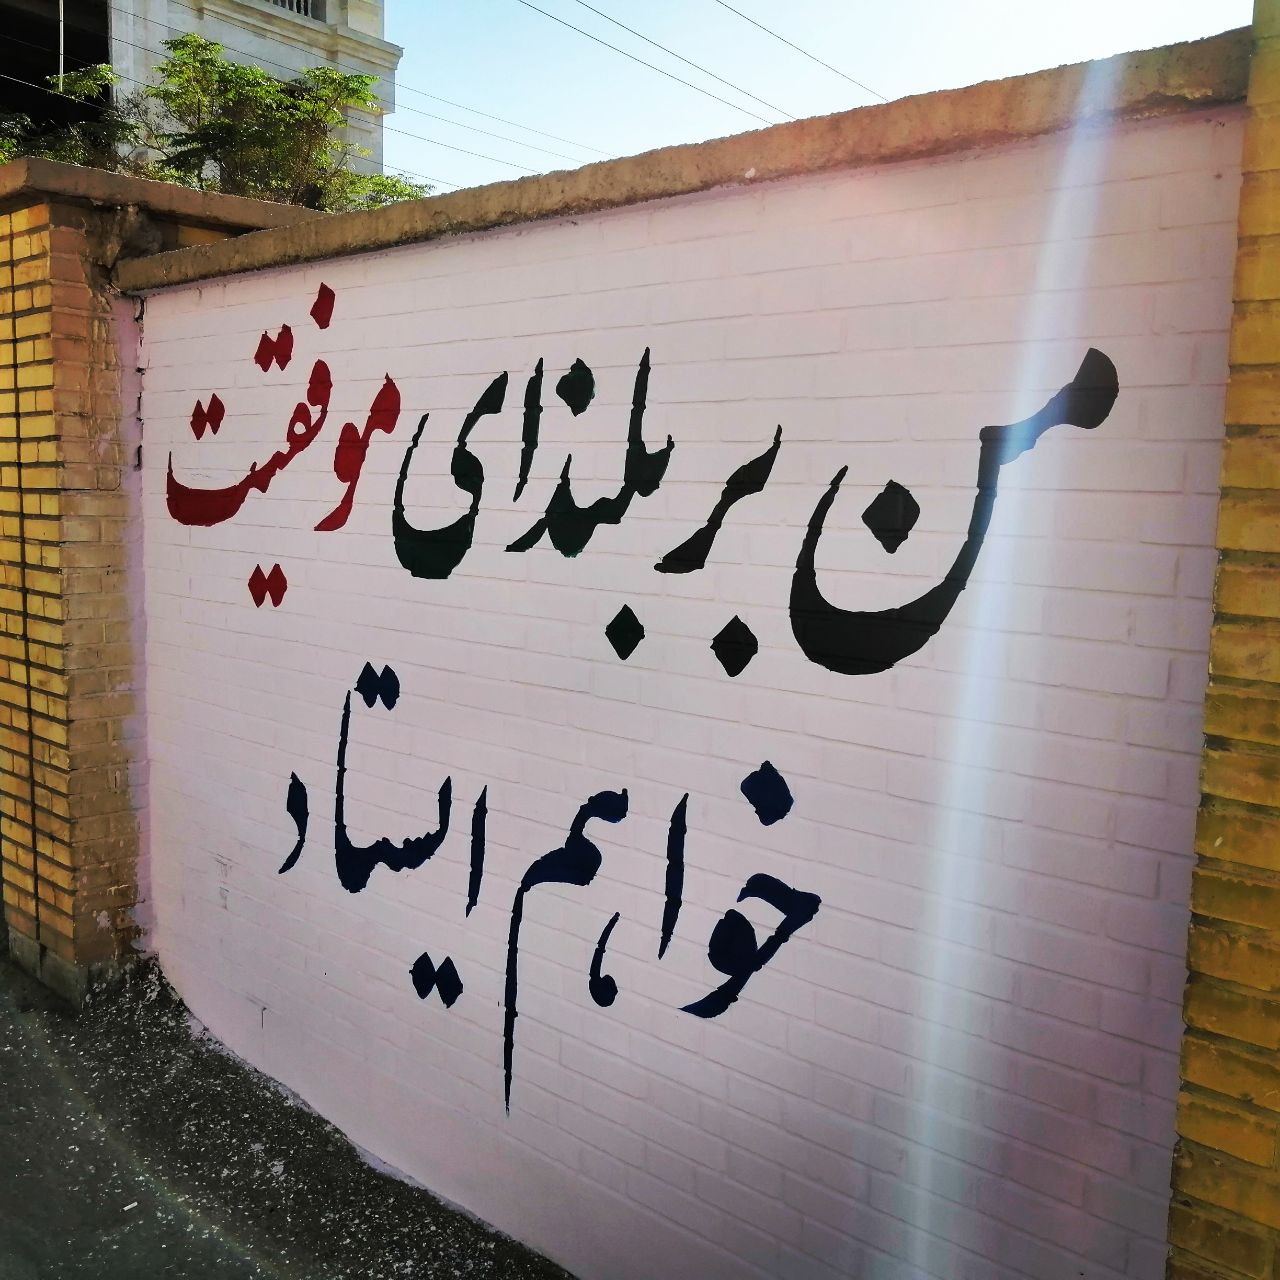 من بر بلندای موفقیت
خواهم ایستاد